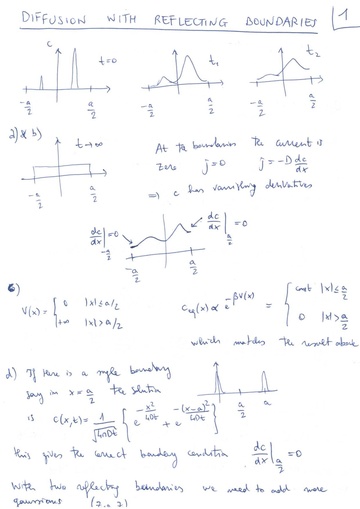 DIFFUSION WITH REFLECTING BOUNDARIES 1
c t=0 t₁ t₂
-a/2 a/2 -a/2 a/2 -a/2 a/2
a) & b)
t→∞
At the boundaries the current is
zero j=0 j = -D dc/dx
⇒ c has vanishing derivatives
-a/2 a/2
dc/dx|-a/2 =0 dc/dx|a/2 =0
-a/2 a/2
c)
V(x) = { 0 |x|≤a/2 +∞ |x|>a/2 c_eq(x) ∝ e^{-βV(x)} = { const |x|≤a/2 0 |x|>a/2
which matches the result above
d) If there is a single boundary
say in x = a/2 the solution
a/2 a
is c(x,t) = 1/√(4πDt) { e^{-x²/4Dt} + e^{-(x-a)²/4Dt} }
this gives the correct boundary condition dc/dx|a/2 =0
With two reflecting boundaries we need to add more
gaussians